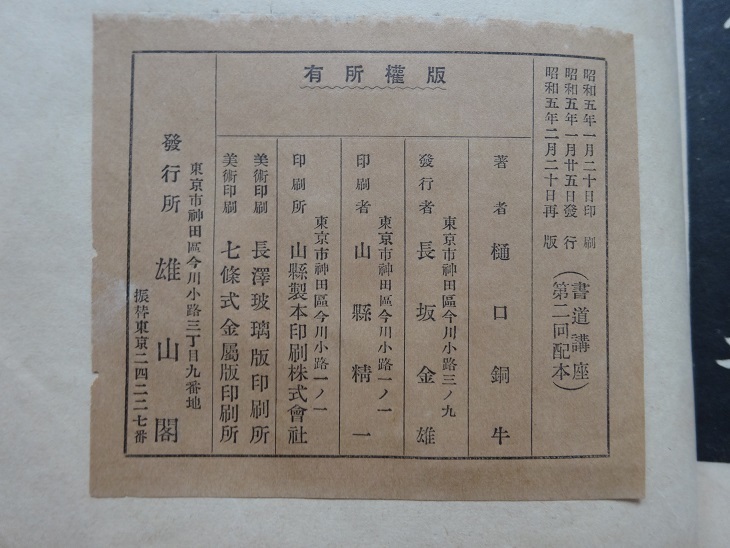 昭和五年一月二十日印刷
昭和五年一月廿五日發行
昭和五年二月二十日再版
(書道講座
第二回配本)
有所權版
著者 樋口銅牛
東京市神田區今川小路三ノ九
發行者 長坂金雄
東京市神田區今川小路一ノ一
印刷者 山縣精一
東京市神田區今川小路一ノ一
印刷所 山縣製本印刷株式會社
美術印刷 長澤玻璃版印刷所
美術印刷 七條式金屬版印刷所
東京市神田區今川小路三丁目九番地
發行所 雄山閣
振替東京二四二二七番